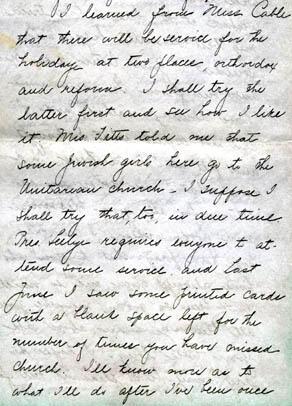 I learned from Miss Cable
that there will be service for the
holiday at two places, orthodox
and reform. I shall try the
latter first and see how I like
it. Mrs. Tetts told me that
some Jewish girls here go to the
Unitarian church - I suppose I
shall try that too, in due time
Pres. Seelye requires everyone to at-
tend some service, and last
June I saw some printed cards
with a blank space left for the
number of times you have missed
church. I'll know more as to
what I'll do after I've been once